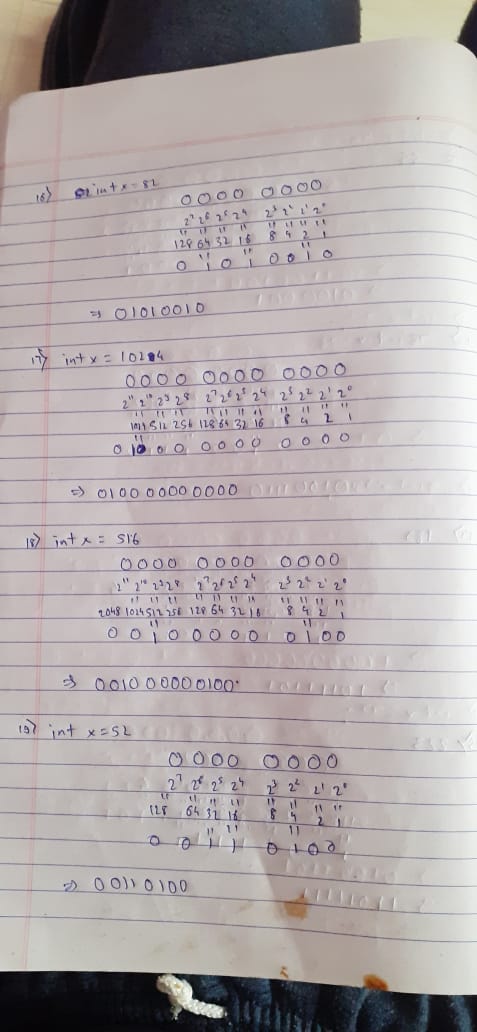 16) int x = 82
0000 0000
2⁷ 2⁶ 2⁵ 2⁴ 2³ 2² 2¹ 2⁰
" " " " " " " "
128 64 32 16 8 4 2 1
" " "
0 1 0 1 0 0 1 0
⇒ 01010010
17) int x = 1024
0000 0000 0000
2¹¹ 2¹⁰ 2⁹ 2⁸ 2⁷ 2⁶ 2⁵ 2⁴ 2³ 2² 2¹ 2⁰
" " " " " " " " " " "
1024 512 256 128 64 32 16 8 4 2 1
"
0 1 0 0 0 0 0 0 0 0 0 0
⇒ 010000000000
18) int x = 516
0000 0000 0000
2¹¹ 2¹⁰ 2⁹ 2⁸ 2⁷ 2⁶ 2⁵ 2⁴ 2³ 2² 2¹ 2⁰
" " " " " " " " " " "
2048 1024 512 256 128 64 32 16 8 4 2 1
" "
0 0 1 0 0 0 0 0 0 1 0 0
⇒ 001000000100
19) int x = 52
0000 0000
2⁷ 2⁶ 2⁵ 2⁴ 2³ 2² 2¹ 2⁰
" " " " " " " "
128 64 32 16 8 4 2 1
" " "
0 0 1 1 0 1 0 0
⇒ 00110100